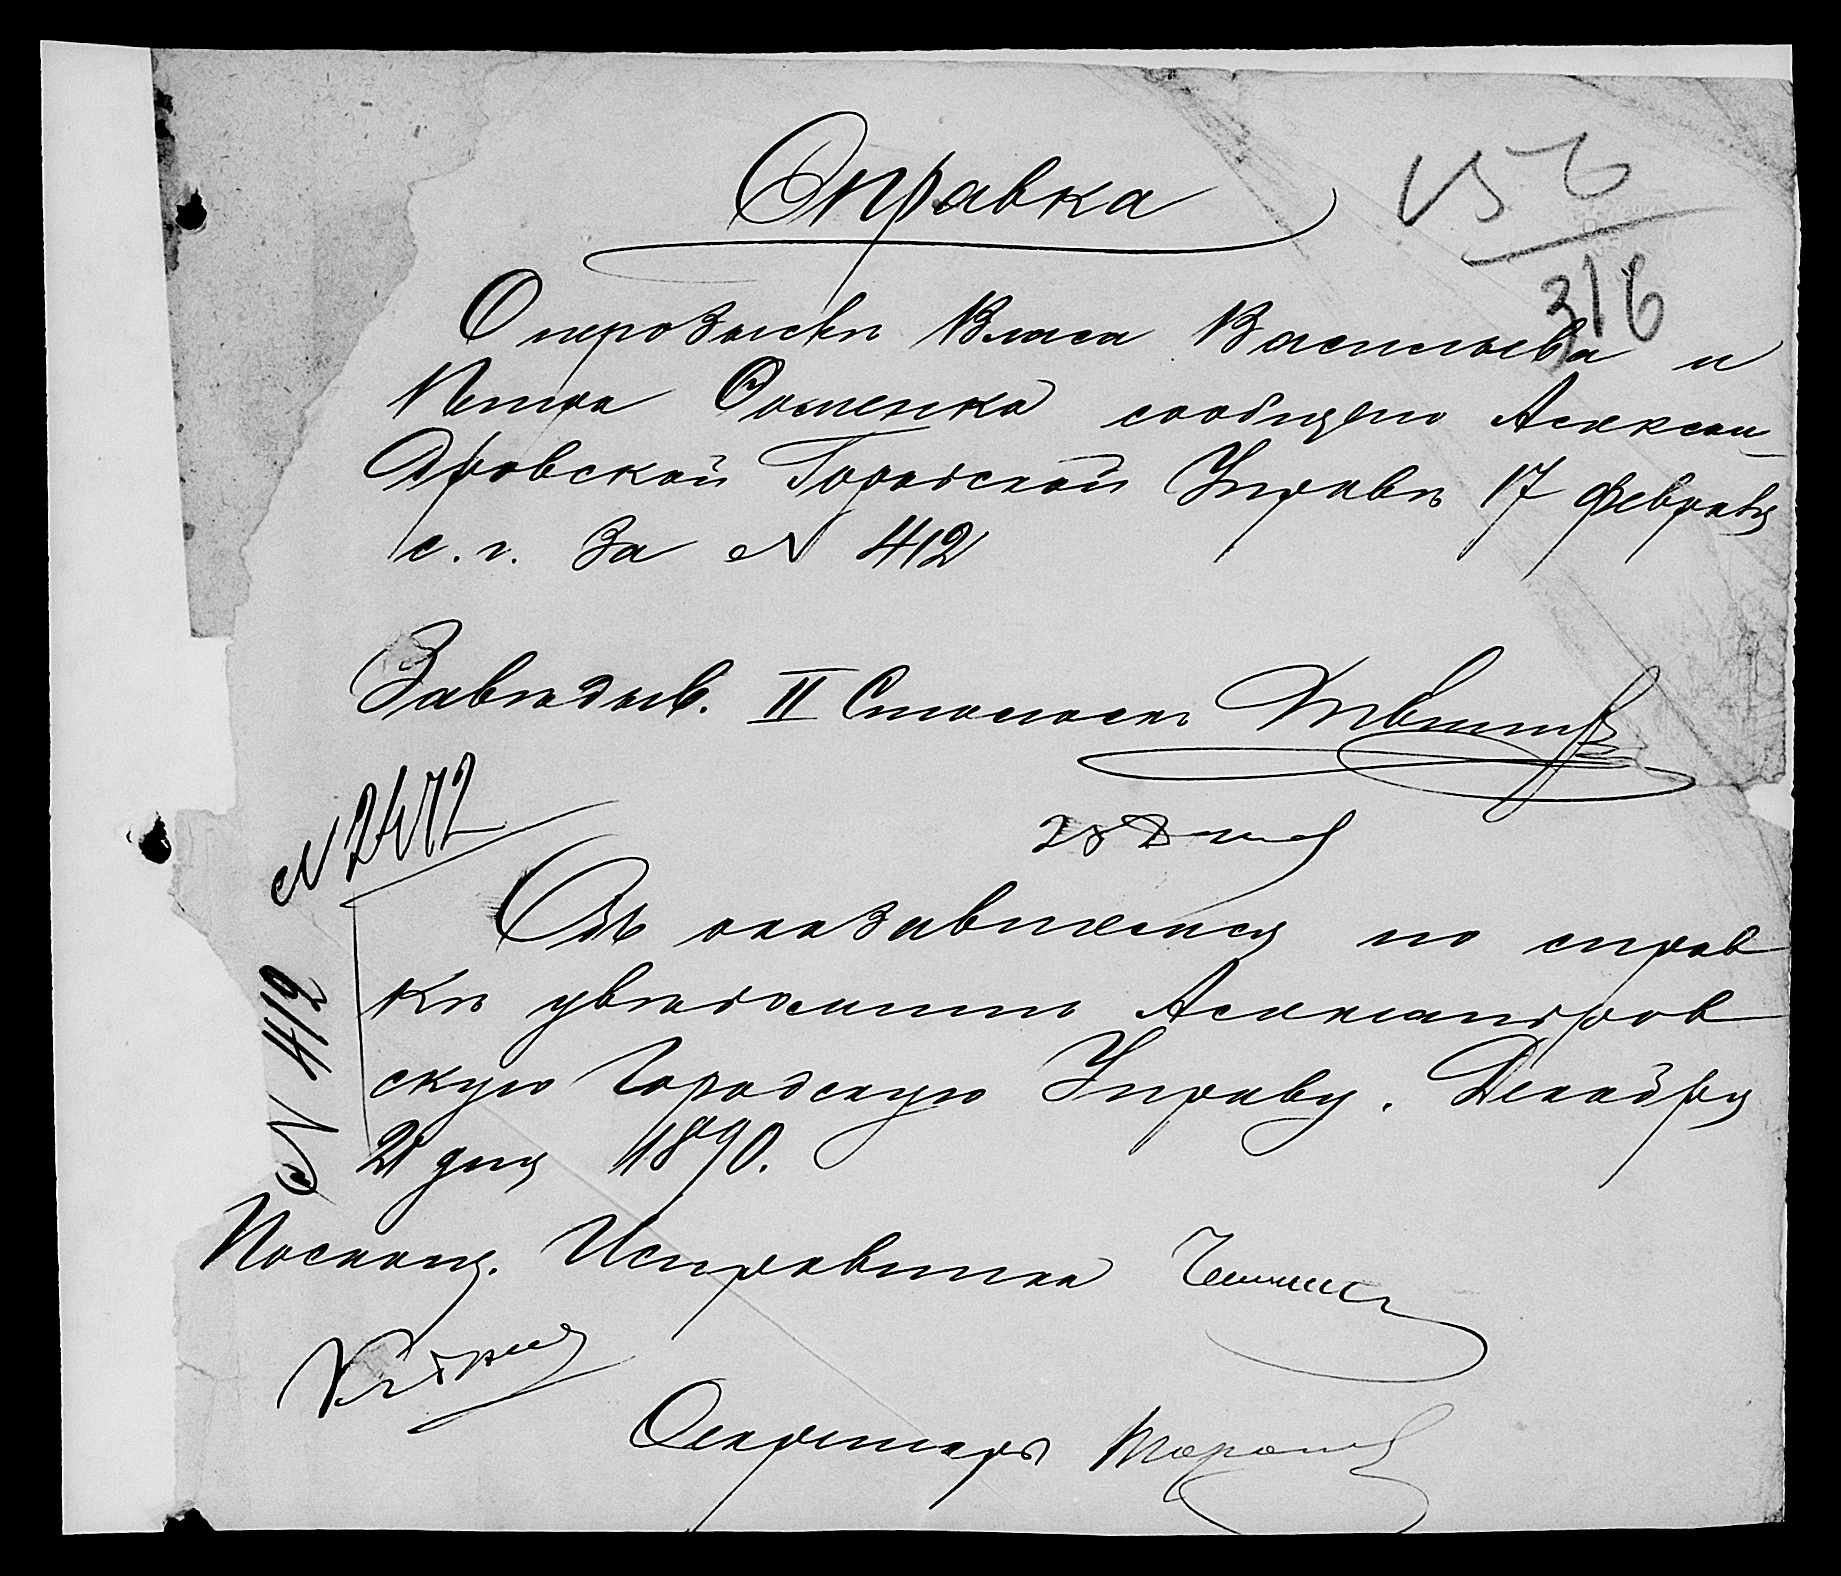 Справка
316
О розыскѣ Власа Васильева и
Петра Фоменка сообщено Алексан-
дровской Городской Управѣ 17 февраля
с. г. за № 412
Завѣдыв. II Столомъ
№ 2472
Объ оказавшемся по справ
кѣ увѣдомить Александров
скую Городскую Управу. Декабря
21 дня 1890.
№ 412
Исправника
Секретарь